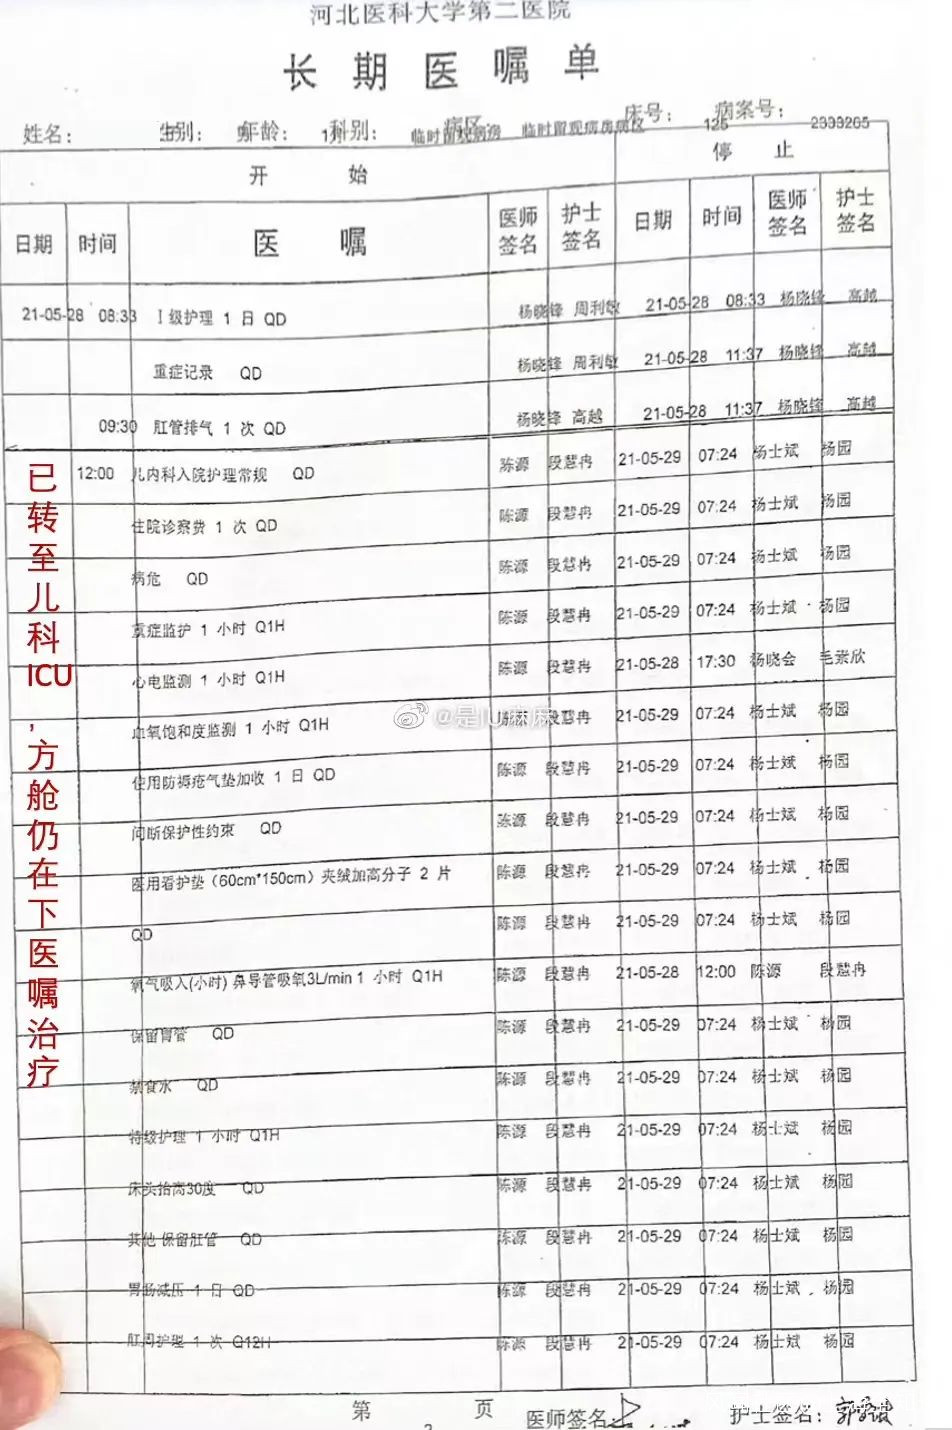 河北医科大学第二医院
长 期 医 嘱 单
姓名: 性别: 年龄: 科别: 临时留观病房 病区: 临时留观病房病区 床号: 125 病案号: 2333265
开 始 停 止
日期 时间 医 嘱 医师签名 护士签名 日期 时间 医师签名 护士签名
21-05-28 08:33 Ⅰ级护理 1 日 QD 杨晓锋 周利敏 21-05-28 08:33 杨晓锋 高越
重症记录 QD 杨晓锋 周利敏 21-05-28 11:37 杨晓锋 高越
09:30 肛管排气 1 次 QD 杨晓锋 高越 21-05-28 11:37 杨晓锋 高越
12:00 儿内科入院护理常规 QD 陈源 段慧冉 21-05-29 07:24 杨士斌 杨园
住院诊察费 1 次 QD 陈源 段慧冉 21-05-29 07:24 杨士斌 杨园
病危 QD 陈源 段慧冉 21-05-29 07:24 杨士斌 杨园
重症监护 1 小时 Q1H 陈源 段慧冉 21-05-29 07:24 杨士斌 杨园
心电监测 1 小时 Q1H 陈源 段慧冉 21-05-28 17:30 杨晓会 毛素欣
血氧饱和度监测 1 小时 Q1H 陈源 段慧冉 21-05-29 07:24 杨士斌 杨园
使用防褥疮气垫加收 1 日 QD 陈源 段慧冉 21-05-29 07:24 杨士斌 杨园
间断保护性约束 QD 陈源 段慧冉 21-05-29 07:24 杨士斌 杨园
医用看护垫（60cm*150cm）夹绒加高分子 2 片 陈源 段慧冉 21-05-29 07:24 杨士斌 杨园
QD 陈源 段慧冉 21-05-29 07:24 杨士斌 杨园
氧气吸入(小时) 鼻导管吸氧3L/min 1 小时 Q1H 陈源 段慧冉 21-05-28 12:00 陈源 段慧冉
保留胃管 QD 陈源 段慧冉 21-05-29 07:24 杨士斌 杨园
禁食水 QD 陈源 段慧冉 21-05-29 07:24 杨士斌 杨园
特级护理 1 小时 Q1H 陈源 段慧冉 21-05-29 07:24 杨士斌 杨园
床头抬高30度 QD 陈源 段慧冉 21-05-29 07:24 杨士斌 杨园
其他 保留肛管 QD 陈源 段慧冉 21-05-29 07:24 杨士斌 杨园
胃肠减压 1 日 QD 陈源 段慧冉 21-05-29 07:24 杨士斌 杨园
肛周护理 1 次 Q12H 陈源 段慧冉 21-05-29 07:24 杨士斌 杨园
第 页 医师签名: 护士签名:
已转至儿科ICU,方舱仍在下医嘱治疗
@是IU麻麻